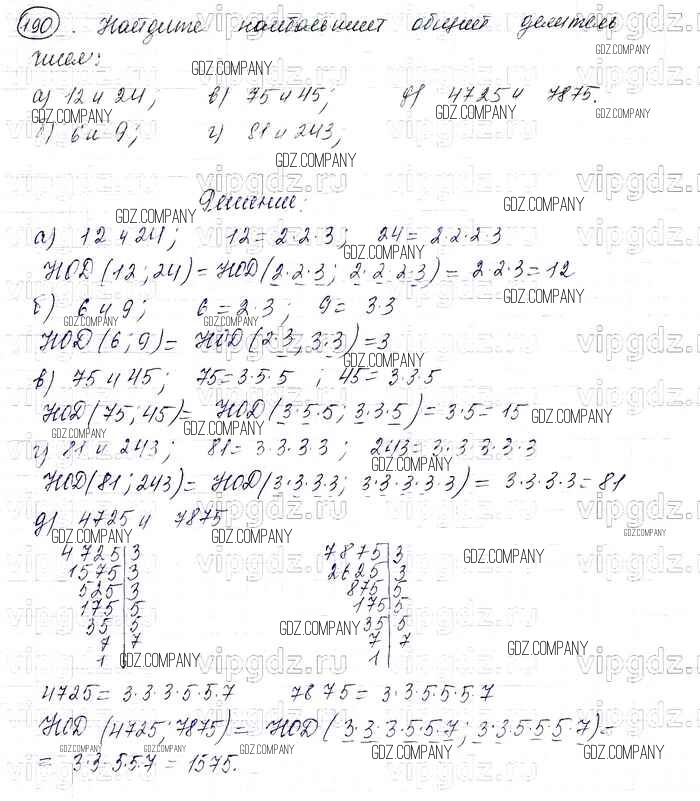 190. Найдите наибольший общий делитель
чисел:
а) 12 и 24; в) 75 и 45; д) 4725 и 7875.
б) 6 и 9; г) 81 и 243;
Решение:
а) 12 и 24; 12 = 2·2·3; 24 = 2·2·2·3
НОД (12; 24) = НОД (2·2·3; 2·2·2·3) = 2·2·3 = 12
б) 6 и 9; 6 = 2·3; 9 = 3·3
НОД (6; 9) = НОД (2·3, 3·3) = 3
в) 75 и 45; 75 = 3·5·5; 45 = 3·3·5
НОД (75; 45) = НОД (3·5·5; 3·3·5) = 3·5 = 15
г) 81 и 243; 81 = 3·3·3·3; 243 = 3·3·3·3·3
НОД (81; 243) = НОД (3·3·3·3; 3·3·3·3·3) = 3·3·3·3 = 81
д) 4725 и 7875
4725 | 3 7875 | 3
1575 | 3 2625 | 3
525 | 3 875 | 5
175 | 5 175 | 5
35 | 5 35 | 5
7 | 7 7 | 7
1 | 1 |
4725 = 3·3·3·5·5·7 7875 = 3·3·5·5·5·7
НОД (4725; 7875) = НОД (3·3·3·5·5·7; 3·3·5·5·5·7) =
= 3·3·5·5·7 = 1575.
GDZ.COMPANY
vipgdz.ru